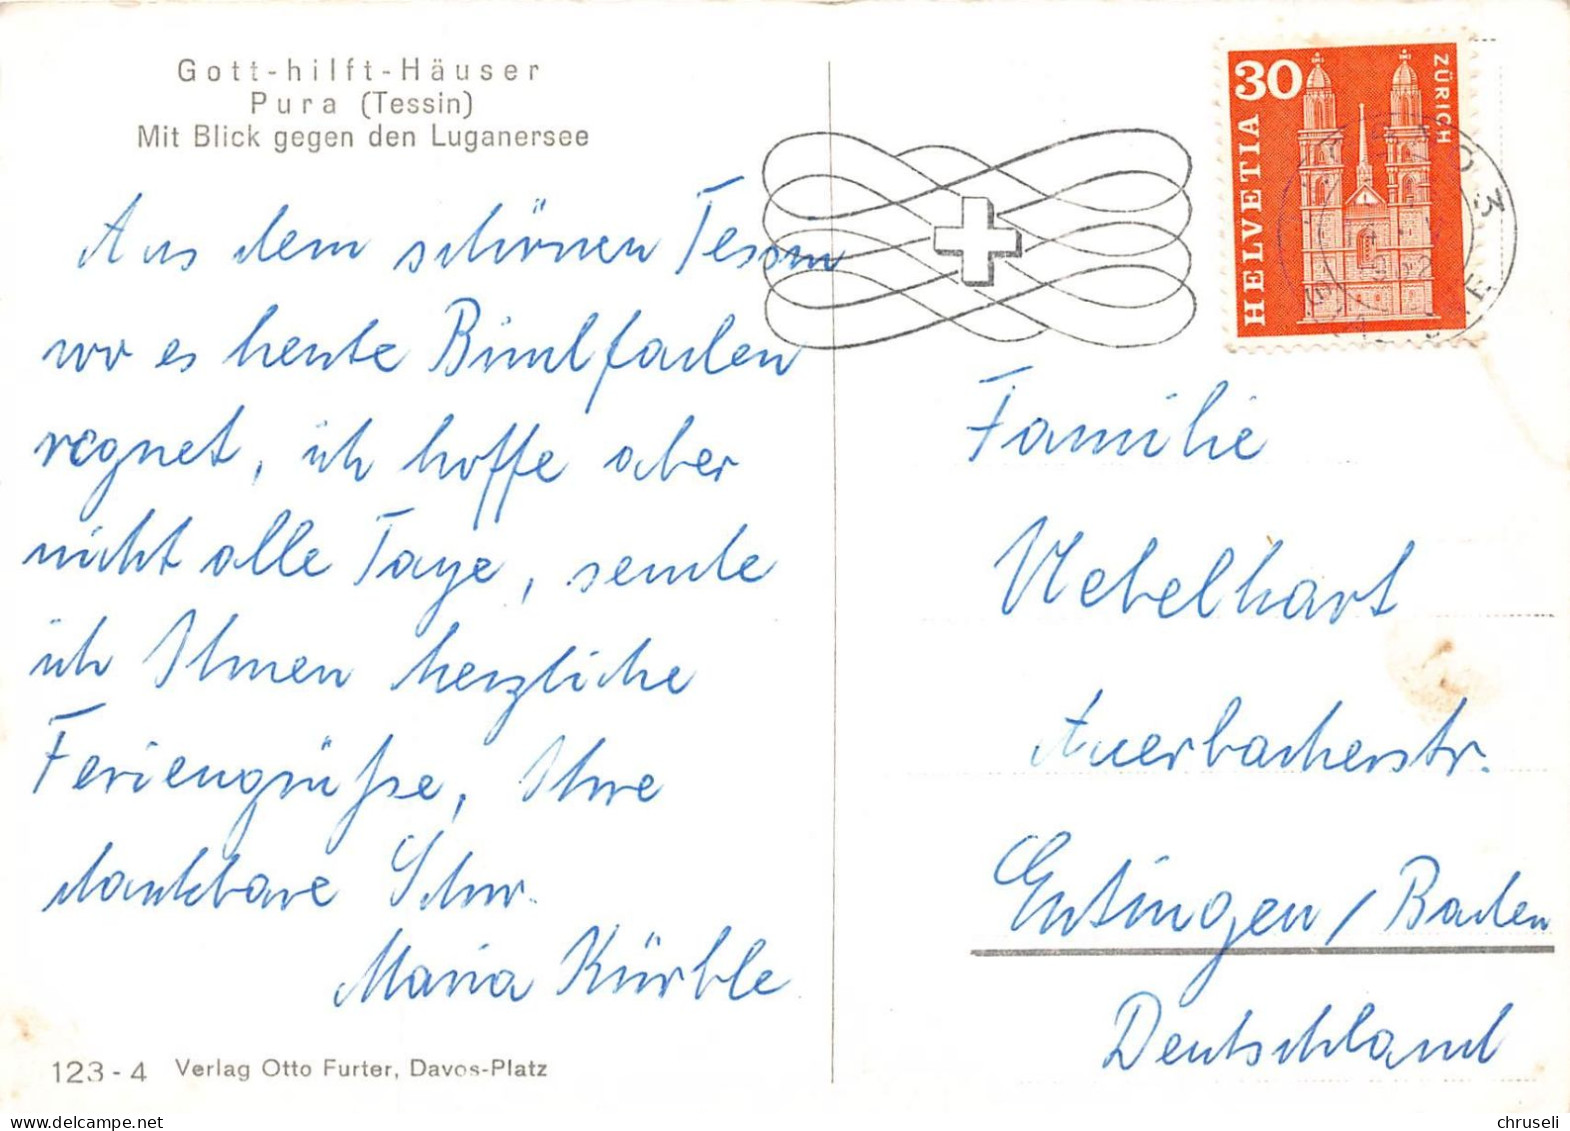 Gott-hilft-Häuser
Pura (Tessin)
Mit Blick gegen den Luganersee
Aus dem schönen Tessin
wo es heute Bindfaden
regnet, ich hoffe aber
nicht alle Tage, sende
ich Ihnen herzliche
Feriengrüße, Ihre
dankbare Schw.
Maria Kürble
123-4 Verlag Otto Furter, Davos-Platz
30
HELVETIA
ZÜRICH
Familie
Uebelhart
Auerbacherstr.
Entingen / Baden
Deutschland
delcampe.net
chruseli